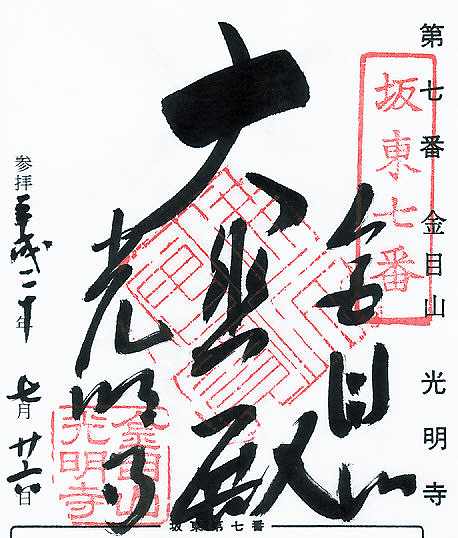 第七番 金目山 光明寺
坂東七番
金目山
大悲殿
光明寺
金目山
光明寺
参拝 平成二十年 七月廿六日
坂東第七番